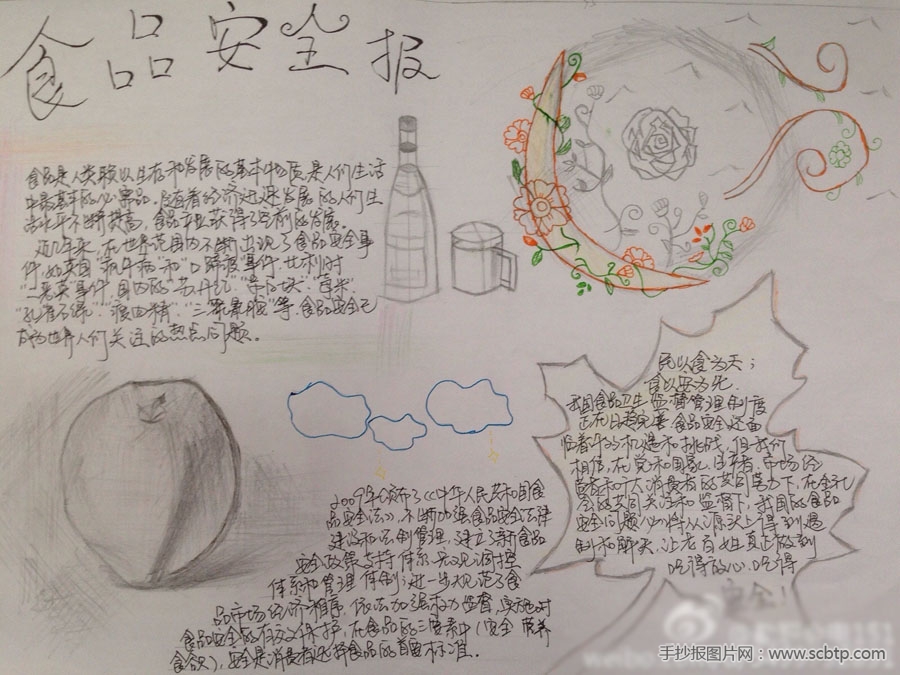 食品安全报
食品是人类赖以生存和发展的基本物质,是人们生活
中最基本的必需品。随着经济迅速发展,的人们生
活水平不断提高,食品产业获得了空前的发展。
近几年来,在世界范围内不断出现了食品安全事
件,如英国"疯牛病"和"口蹄疫"事件,比利时
"二恶英"事件,国内的"苏丹红"
"孔雀石绿""瘦肉精""三聚氰胺"等,食品安全已
成为世界人们关注的热点问题。
民以食为天;
食以安为先.
我国食品卫生监督管理制度
正在日趋完善,食品安全还面
临着许的机遇和挑战,但我们
相信,在党和国家、生产者、市场经
营者和广大消费者的共同努力下,在全社
会的共同关注和监督下,我国的食品
安全问题必将从源头上得到遏
制和解决,让老百姓真正做到
吃得放心、吃得
安全!
2009年颁布了《中华人民共和国食
品安全法》,不断加强食品安全法律
建设和法制管理,建立了新食品
安全政策支持体系、宏观调控
体系和管理体制;进一步规范了食
品市场经济秩序,依法加强权力监督,实施对
食品安全的有效保护,在食品的三要素中(安全 营养
食欲),安全是消费者选择食品的首要标准.
手抄报图片网:www.scbtp.com